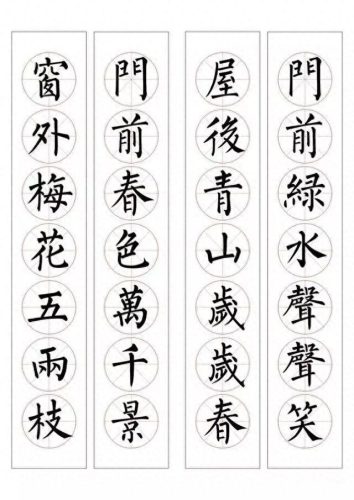 門前綠水聲聲笑
屋後青山歲歲春
門前春色萬千景
窗外梅花五兩枝